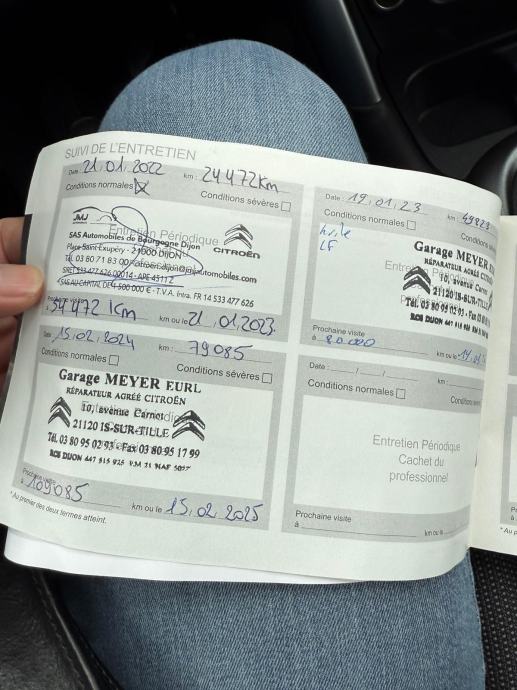 SUIVI DE L'ENTRETIEN
Date : 21.01.2022 km : 24472km
Conditions normales Conditions sévères
Entretien Périodique
SAS Automobiles de Bourgogne Dijon
Place Saint Exupéry - 21000 DIJON
CITROËN
Tél. 03 80 71 83 00
SAS AU CAPITAL DE 1 500 000 € - T.V.A. Intra. FR 14 533 477 626
54472 km ou le 21.01.2023
Date : 19.01.23 km :
Conditions normales
huile
LF
Garage MEYER
RÉPARATEUR AGRÉÉ CITROËN
10, avenue
21120 IS-SUR-TILLE
Tél. 03 80 95 02 93 - Fax
RCS DIJON 447 515 925
Prochaine visite
à 80.000 km ou le
Date : 15.02.2024 km : 79085
Conditions normales Conditions sévères
Garage MEYER EURL
RÉPARATEUR AGRÉÉ CITROËN
10, avenue Carnot
21120 IS-SUR-TILLE
Tél. 03 80 95 02 93 - Fax 03 80 95 17 99
Prochaine visite
à 109085 km ou le 15.02.2025
* Au premier des deux termes atteint.
Date : km :
Conditions normales
Entretien Périodique
Cachet du
professionnel
Prochaine visite
à km ou le